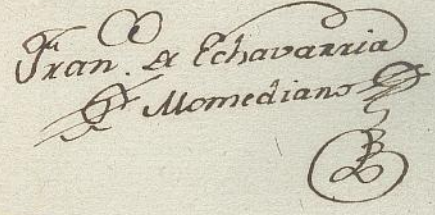 Fran. de Echavarria
Momediano